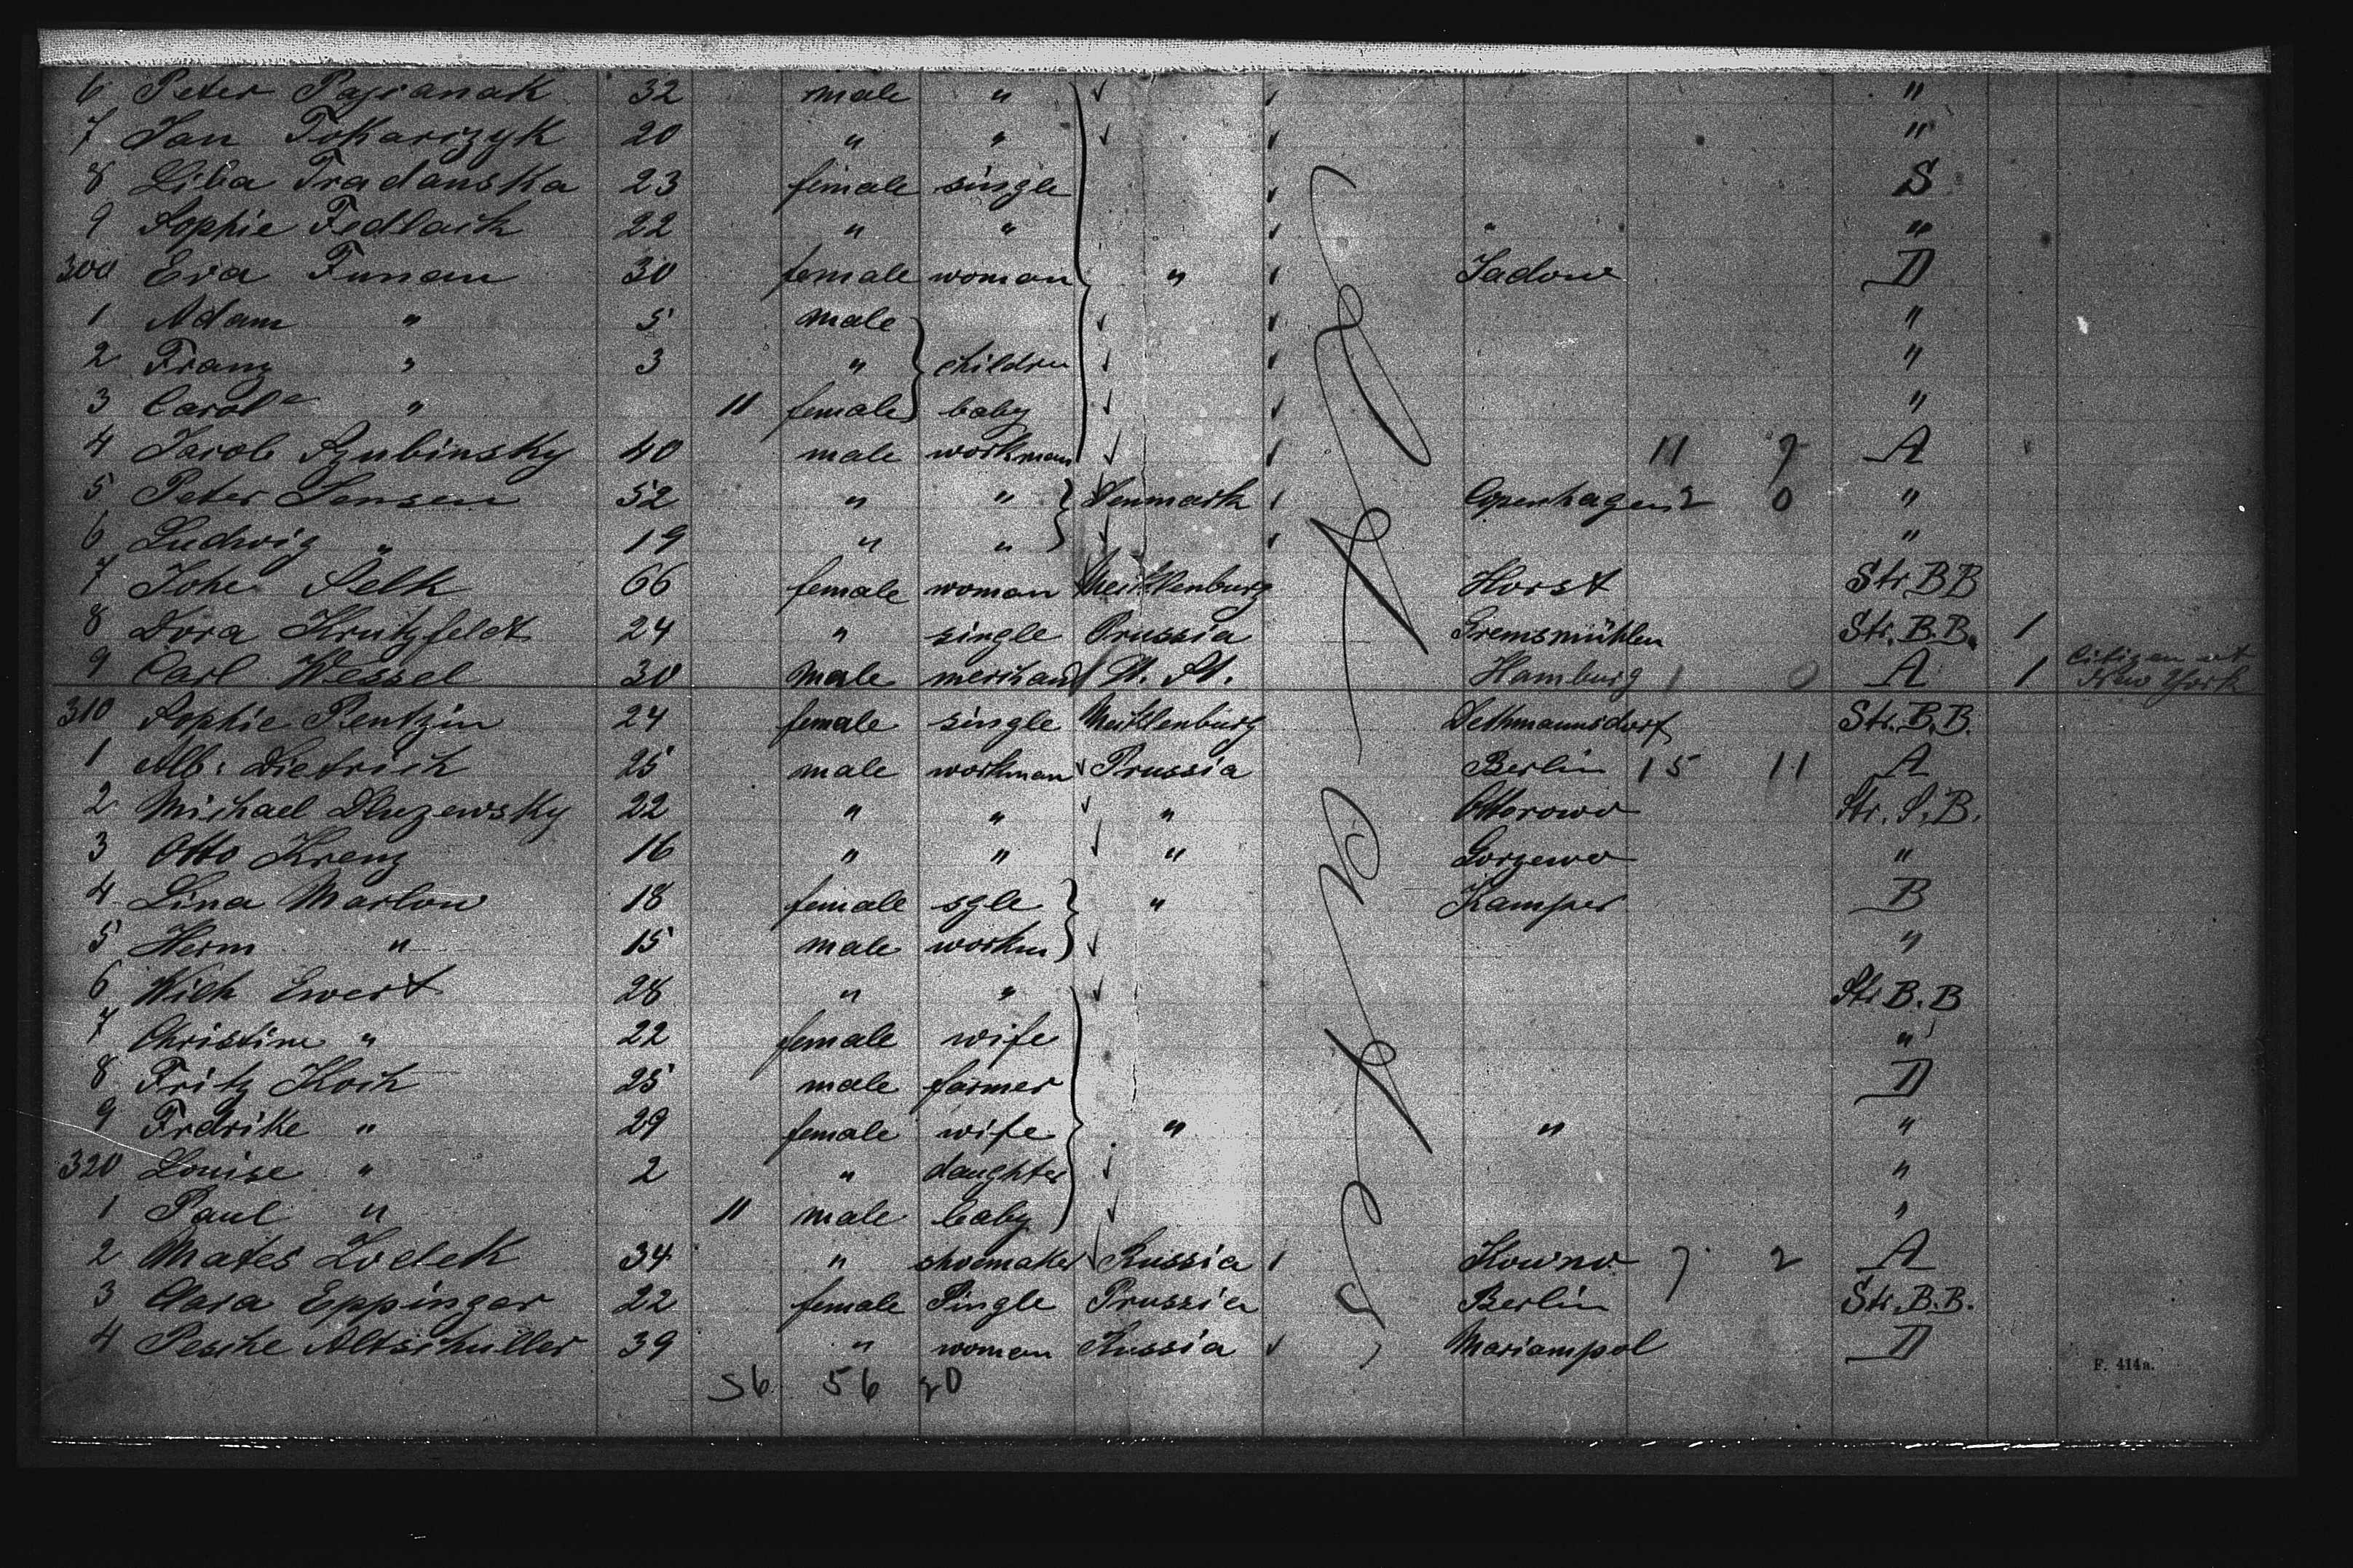 6 Peter Pajianak 32 male " "
7 Jan Tokarizyk 20 " " "
8 Liba Tradanska 23 female single S
9 Sophie Fedlaik 22 " " " "
300 Eva Funan 30 female woman " Sadow D
1 Adam " 5 male "
2 Franz " 3 " children "
3 Carole " 11 female baby "
4 Jacob Szubinsky 40 male workman 11 7 A
5 Peter Jensen 52 " " Denmark Copenhagen 2 0 "
6 Ludwig " 19 " " "
7 Johe Selk 66 female woman Mecklenburg Horst Str. B B
8 Dora Krutzfeldt 24 " single Prussia Gremsmühlen Str. B. B. 1
9 Carl Wessel 30 male merchant U. St. Hamburg 1 0 A 1 Citizen at New York
310 Sophie Pentzin 24 female single Mecklenburg Dethmannsdorf Str. B. B.
1 Alb: Dietrich 25 male workman Prussia Berlin 15 11 A
2 Michael Dluzewsky 22 " " " Ottorowo Str. S. B.
3 Otto Krenz 16 " " " Gorzewo "
4 Lina Marlow 18 female sgle " Kamper B
5 Herm " 15 male workm "
6 Wilh Ewert 28 " " Str. B. B
7 Christine " 22 female wife "
8 Fritz Koch 25 male farmer D
9 Fredrike " 29 female wife " " "
320 Louise " 2 " daughter "
1 Paul " 11 male baby "
2 Mates Lodek 34 " shoemaker Russia Kowno 7 2 A
3 Clara Eppinger 22 female Single Prussia Berlin Str. B. B.
4 Pesche Altschuller 39 " woman Russia Mariampol D
56 56 20
F. 414a.